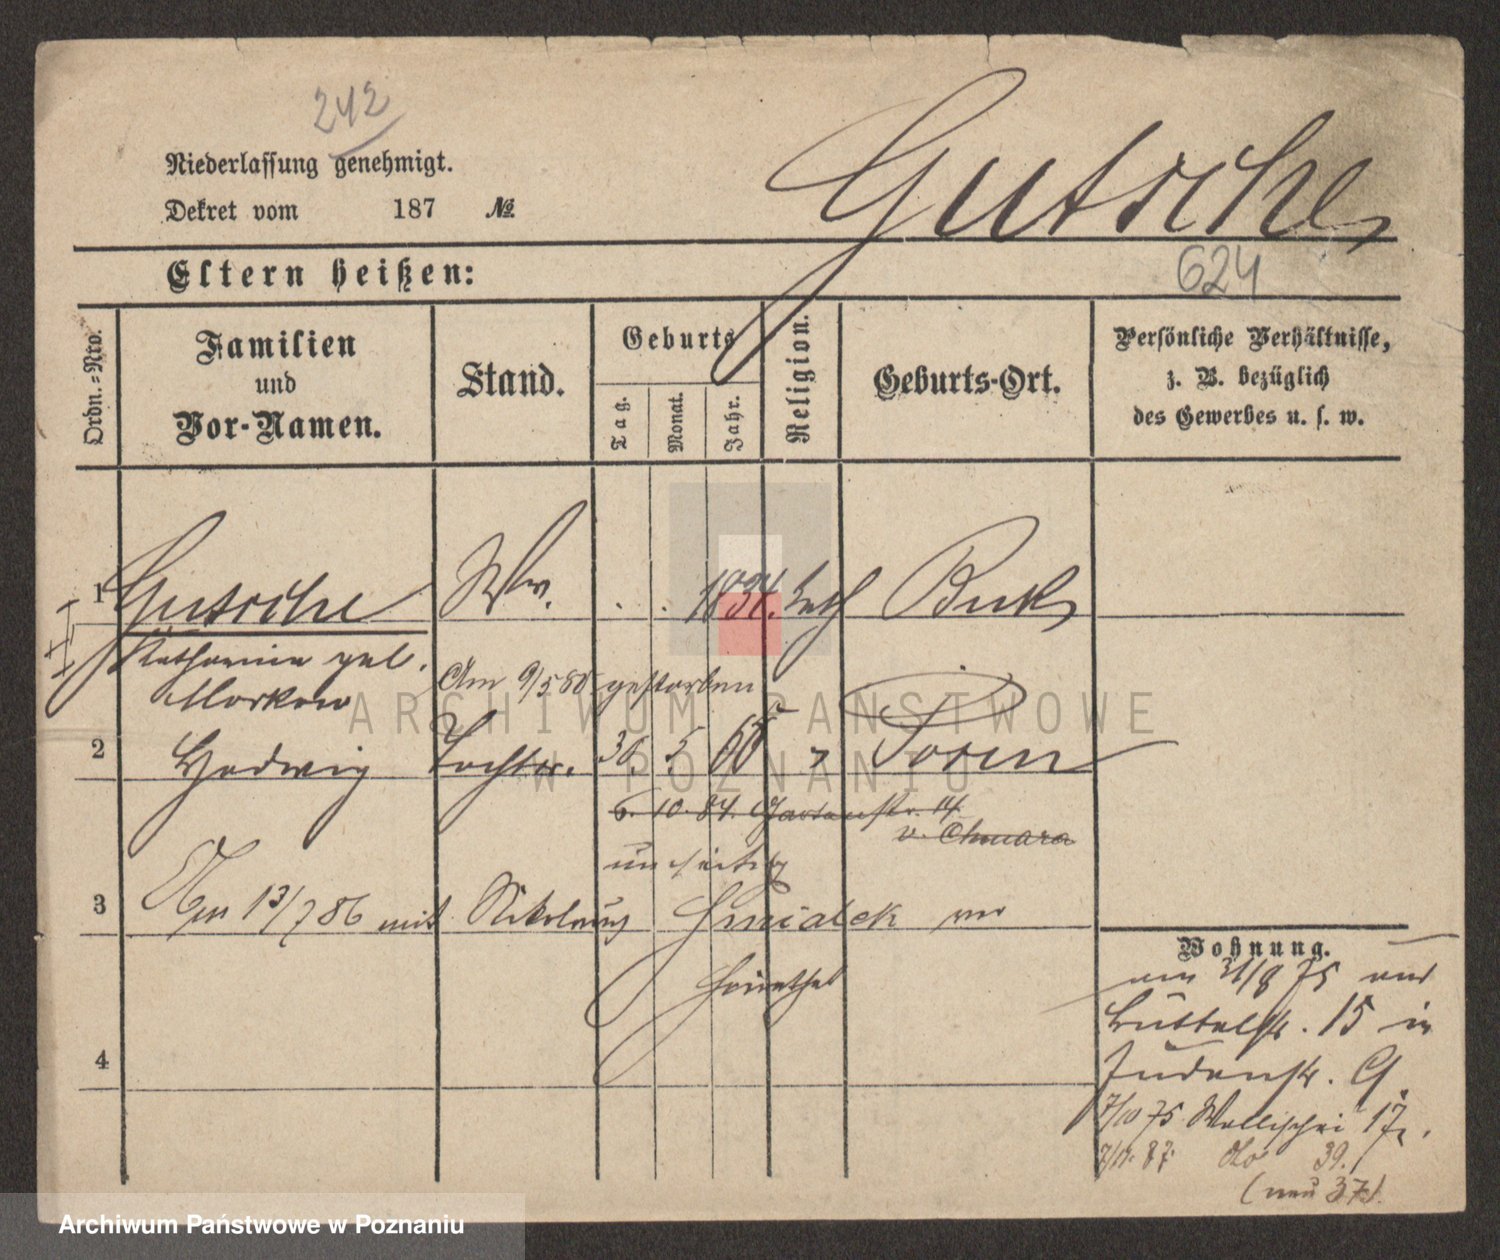 242
Niederlassung genehmigt.
Dekret vom 187 №
Gutsche
Eltern heißen:
624
Ordn.=Nro.
Familien
und
Vor-Namen.
Stand.
Geburts
Tag.
Monat.
Jahr.
Religion.
Geburts-Ort.
Persönliche Verhältnisse,
z. B. bezüglich
des Gewerbes u. s. w.
1 Gutsche Ww. . . 1834. kath Buk
Katharina geb.
Am 9/5 80 gestorben
2 Hedwig Tochter. 5 Posen
6. 10. 84. Gartenstr. 14.
v. Chmara
3 Am 13/7 86 mit Nikolaus
verheirathet
4
Wohnung.
am 31/8 75 von
Büttelstr. 15 in
Judenstr. 9.
7/10 75 Wallischei 17.
39.
(neu 37).
ARCHIWUM PAŃSTWOWE
W POZNANIU
Archiwum Państwowe w Poznaniu